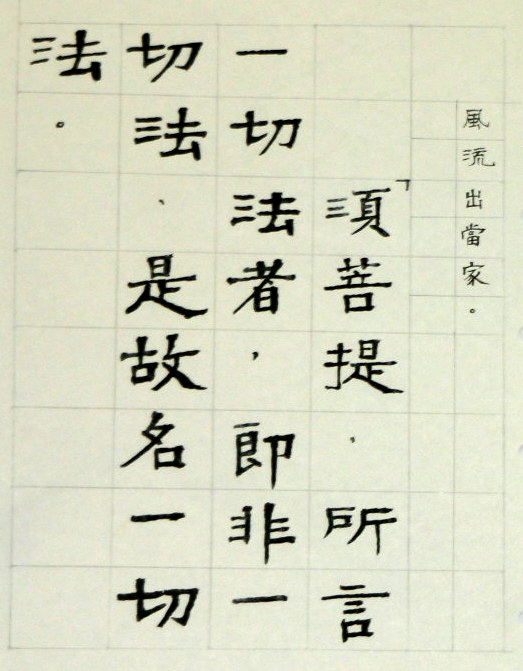 風流出當家。
「須菩提，所言
一切法者，即非一
切法，是故名一切
法。